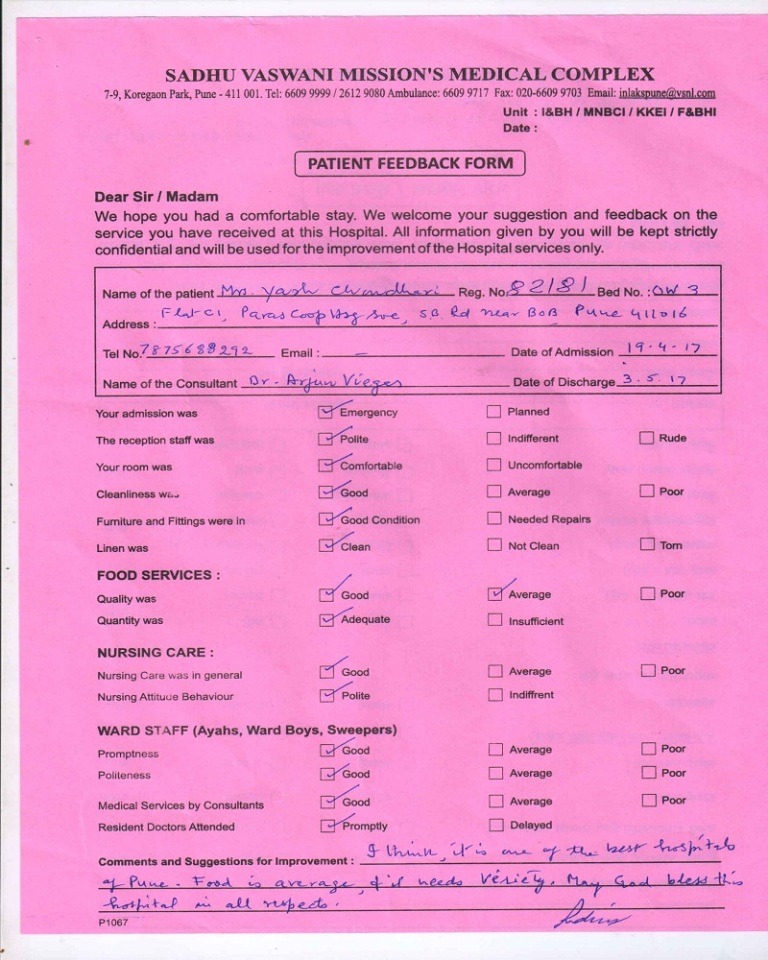 SADHU VASWANI MISSION'S MEDICAL COMPLEX
7-9, Koregaon Park, Pune - 411 001. Tel: 6609 9999 / 2612 9080 Ambulance: 6609 9717 Fax: 020-6609 9703 Email: inlakspune@vsnl.com
Unit : I&BH / MNBCI / KKEI / F&BHI
Date :
PATIENT FEEDBACK FORM
Dear Sir / Madam
We hope you had a comfortable stay. We welcome your suggestion and feedback on the
service you have received at this Hospital. All information given by you will be kept strictly
confidential and will be used for the improvement of the Hospital services only.
Name of the patient Mrs. Yash Chowdhari Reg. No. 82181 Bed No. : OW 3
Address : Flat C1, Paras Coop Hsg Soc, S.B. Rd near BOB Pune 411016
Tel No. 7875688292 Email : — Date of Admission 19-4-17
Name of the Consultant Dr. Arjun Viegas Date of Discharge 3.5.17
Your admission was Emergency Planned
The reception staff was Polite Indifferent Rude
Your room was Comfortable Uncomfortable
Cleanliness was Good Average Poor
Furniture and Fittings were in Good Condition Needed Repairs
Linen was Clean Not Clean Torn
FOOD SERVICES :
Quality was Good Average Poor
Quantity was Adequate Insufficient
NURSING CARE :
Nursing Care was in general Good Average Poor
Nursing Attitude Behaviour Polite Indiffrent
WARD STAFF (Ayahs, Ward Boys, Sweepers)
Promptness Good Average Poor
Politeness Good Average Poor
Medical Services by Consultants Good Average Poor
Resident Doctors Attended Promptly Delayed
Comments and Suggestions for Improvement : I think, it is one of the best hospitals
of Pune. Food is average, & it needs Veriety. May God bless this
hospital in all respects.
P1067